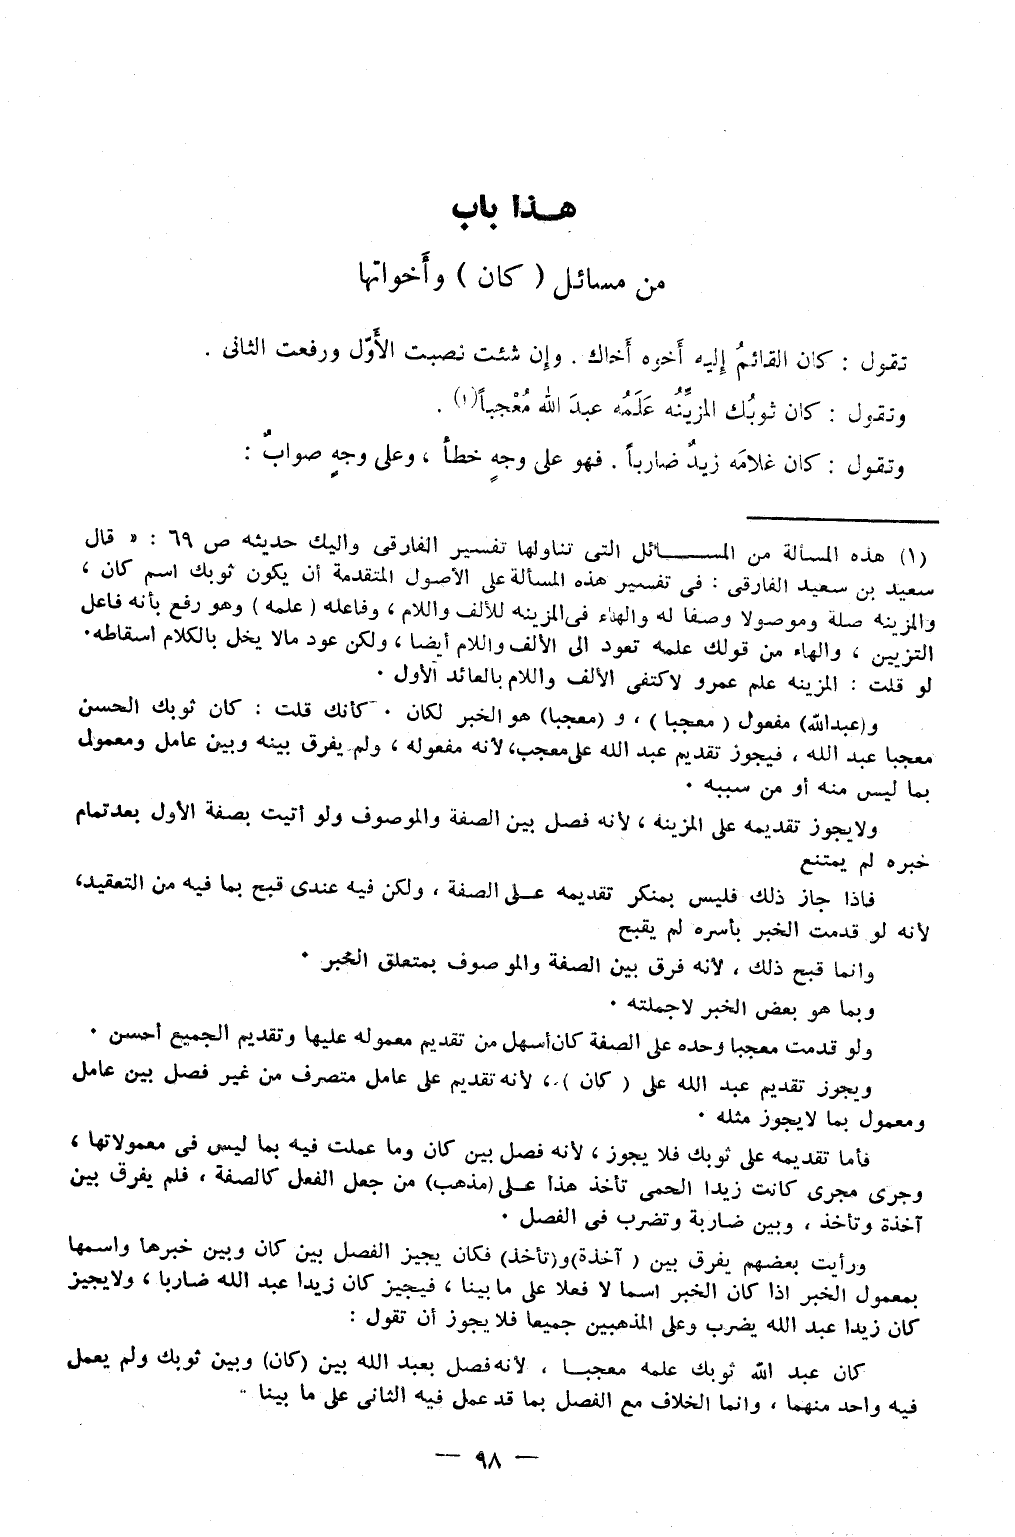 هـــذا باب
من مسائل ( كان ) وأَخواتها
تقول : كان القائمُ إليه أَخوه أَخاك . وإن شئت نصبت الأَوّل ورفعت الثانى .
وتقول : كان ثوبُك المزيِّنُه عَلَمُه عبدَ الله مُعْجباً(١) .
وتقول : كان غلامَه زيدٌ ضارباً . فهو على وجهٍ خطأٌ ، وعلى وجهٍ صوابٌ :
(١) هذه المسألة من المسـائل التى تناولها تفسير الفارقى واليك حديثه ص ٦٩ : « قال
سعيد بن سعيد الفارقى : فى تفسير هذه المسألة على الأصول المتقدمة أن يكون ثوبك اسم كان ،
والمزينه صلة وموصولا وصفا له والهاء فى المزينه للألف واللام ، وفاعله ( علمه ) وهو رفع بأنه فاعل
التزيين ، والهاء من قولك علمه تعود الى الألف واللام أيضا ، ولكن عود مالا يخل بالكلام اسقاطه٠
لو قلت : المزينه علم عمرو لاكتفى الألف واللام بالعائد الأول ٠
و(عبدالله) مفعول ( معجبا ) ، و (معجبا) هو الخبر لكان ٠ كأنك قلت : كان ثوبك الحسن
معجبا عبد الله ، فيجوز تقديم عبد الله على معجب، لأنه مفعوله ، ولم يفرق بينه وبين عامل ومعمول
بما ليس منه أو من سببه ٠
ولايجوز تقديمه على المزينه ، لأنه فصل بين الصفة والموصوف ولو أتيت بصفة الأول بعد تمام
خبره لم يمتنع
فاذا جاز ذلك فليس بمنكر تقديمه عـلى الصفة ، ولكن فيه عندى قبح بما فيه من التعقيد،
لأنه لو قدمت الخبر بأسره لم يقبح
وانما قبح ذلك ، لأنه فرق بين الصفة والموصوف بمتعلق الخبر ٠
وبما هو بعض الخبر لاجملته ٠
ولو قدمت معجبا وحده على الصفة كان أسهل من تقديم معموله عليها وتقديم الجميع أحسن ٠
ويجوز تقديم عبد الله على ( كان ) ، لأنه تقديم على عامل متصرف من غير فصل بين عامل
ومعمول بما لايجوز مثله ٠
فأما تقديمه على ثوبك فلا يجوز ، لأنه فصل بين كان وما عملت فيه بما ليس فى معمولاتها ،
وجرى مجرى كانت زيدا الحمى تأخذ هذا عـلى (مذهب) من جعل الفعل كالصفة ، فلم يفرق بين
آخذة وتأخذ ، وبين ضاربة وتضرب فى الفصل ٠
ورأيت بعضهم يفرق بين ( آخذة)و(تأخذ) فكان يجيز الفصل بين كان وبين خبرها واسمها
بمعمول الخبر اذا كان الخبر اسما لا فعلا على ما بينا ، فيجيز كان زيدا عبد الله ضاربا ، ولايجيز
كان زيدا عبد الله يضرب وعلى المذهبين جميعا فلا يجوز أن تقول :
كان عبد الله ثوبك علمه معجبـا ، لأنه فصل بعبد الله بين (كان) وبين ثوبك ولم يعمل
فيه واحد منهما ، وانما الخلاف مع الفصل بما قد عمل فيه الثانى على ما بينا ٠
— ٩٨ —